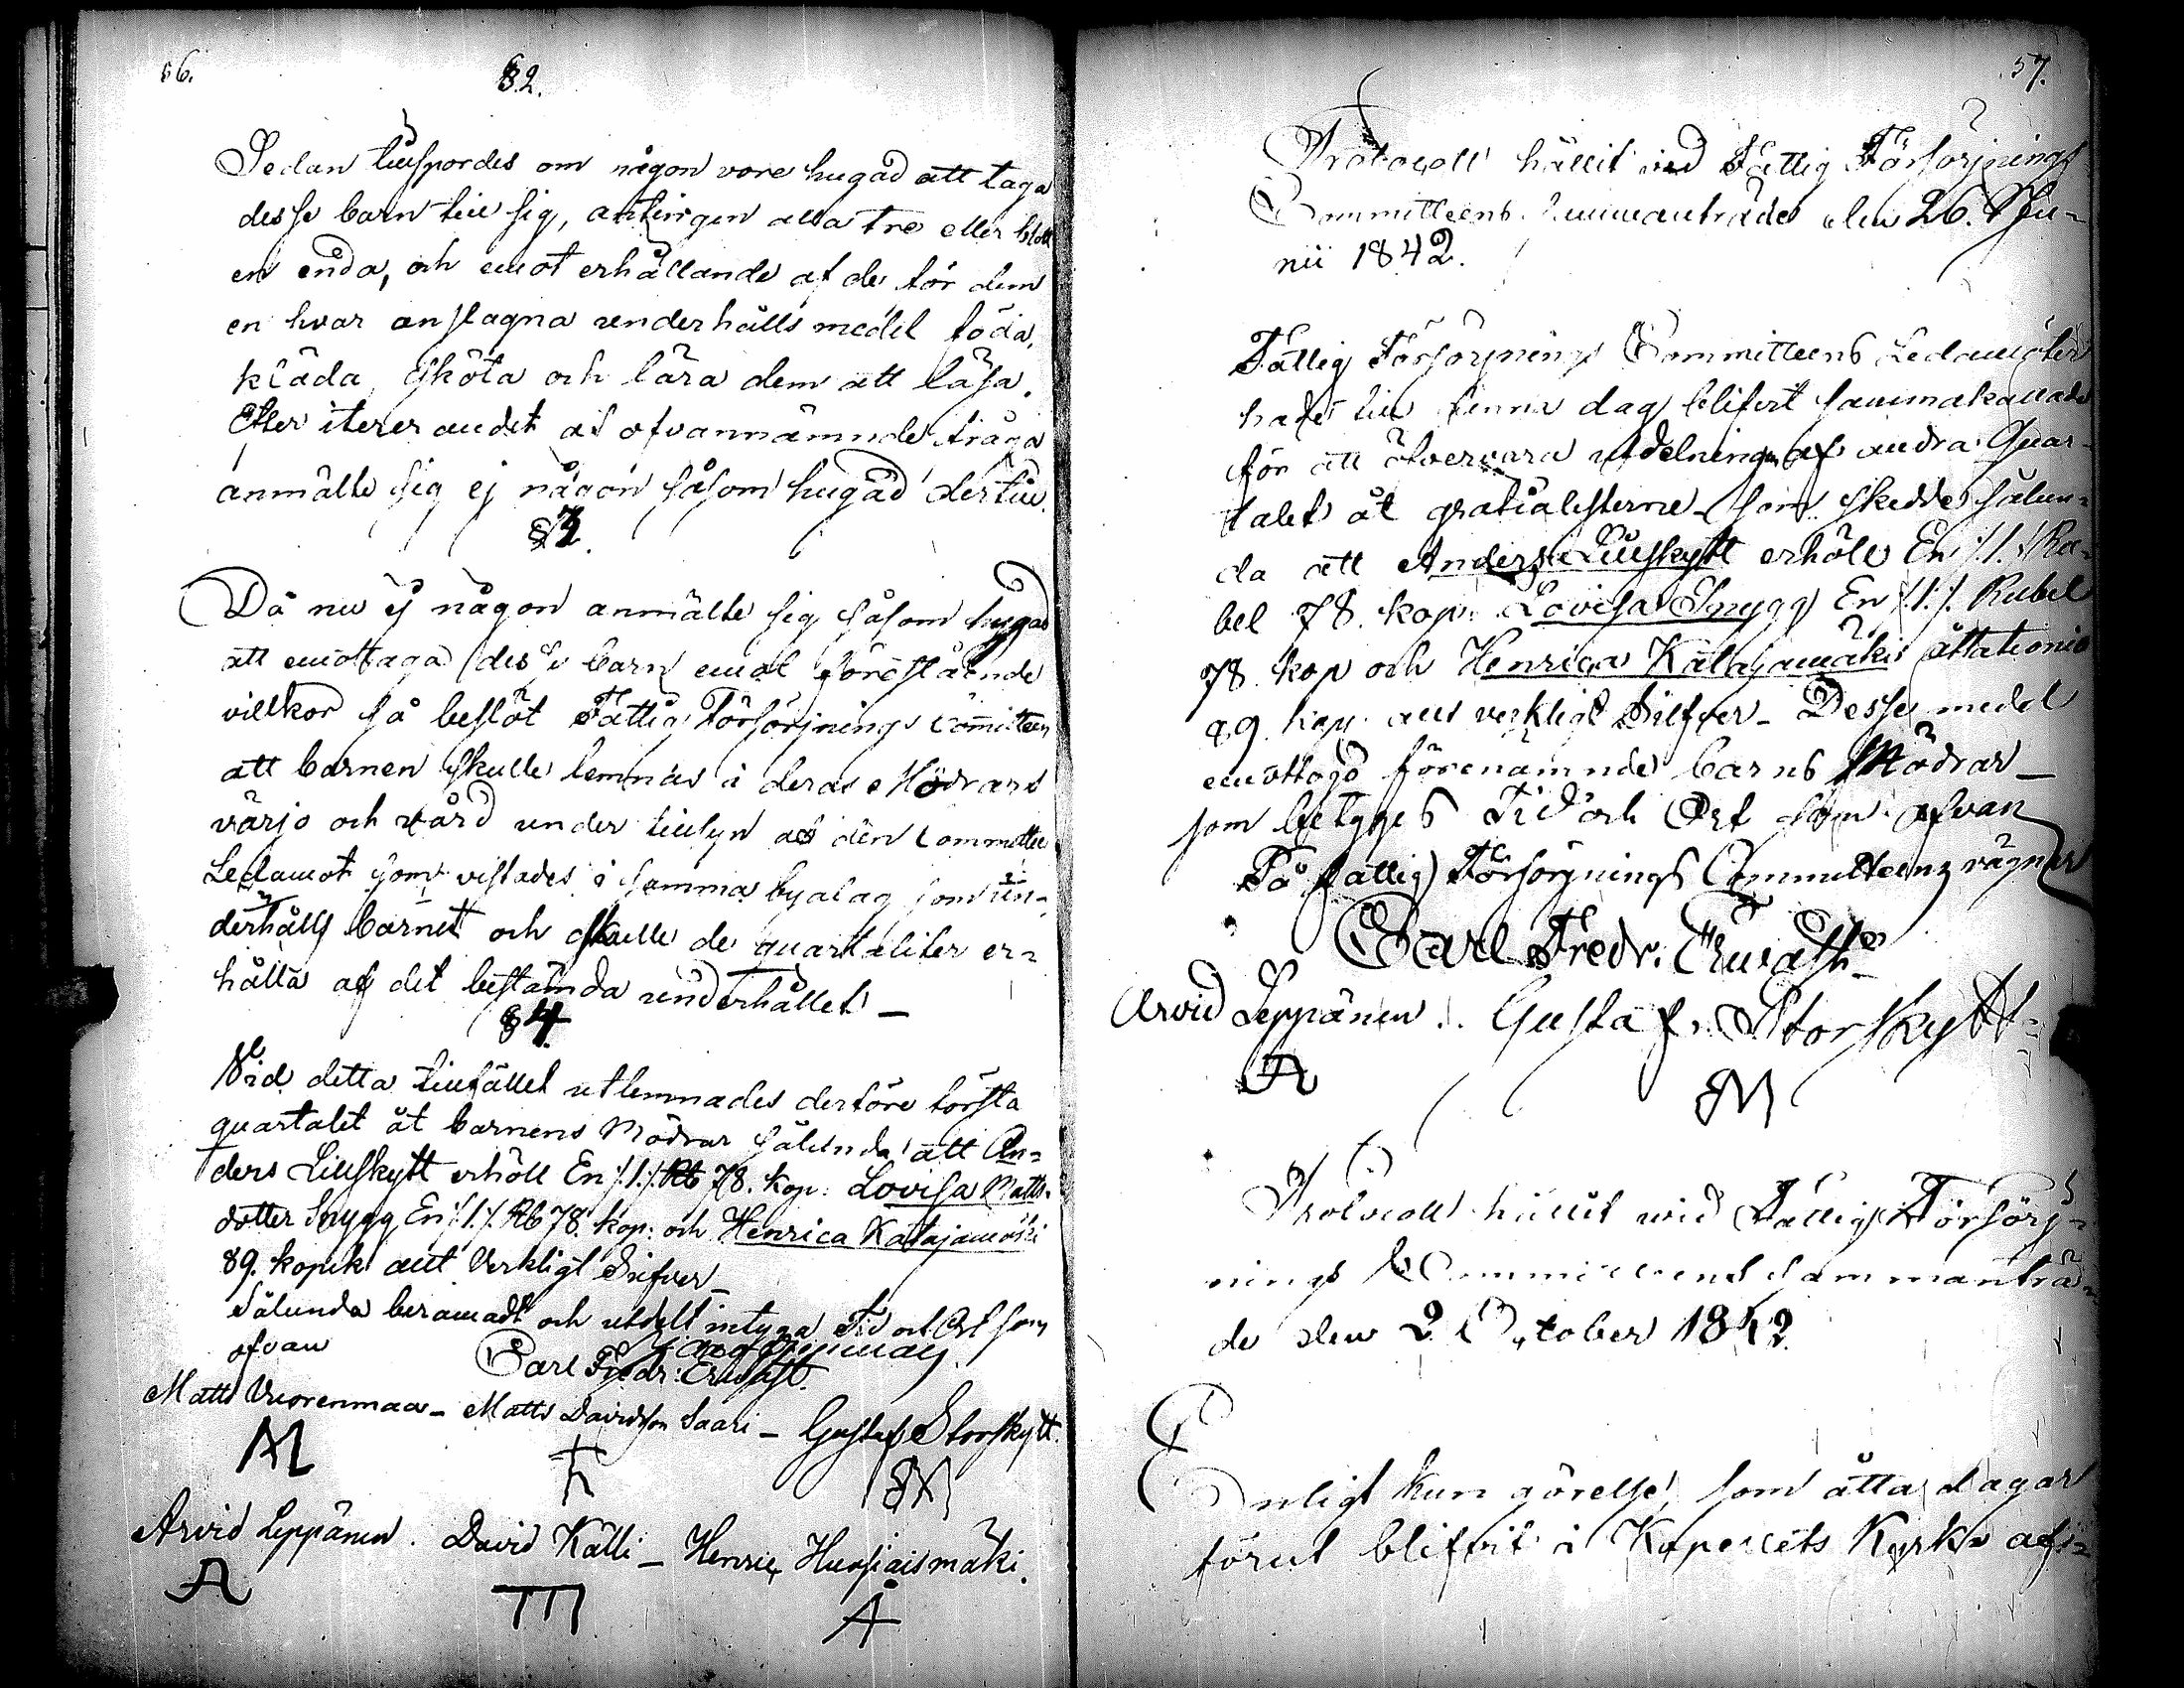 56.
§ 2.
Sedan tillspordes om någon vore hugad att taga
desse barn till sig, antingen alla tre eller blott
en enda, och emot erhållande af de för dem
en hvar anslagna underhålls medel föda,
kläda, sköta och lära dem att läsa.
Efter itererandet af ofvannämnde fråga
anmälte sig ej någon såsom hugad dertill.
§ 3.
Då nu ej någon anmälte sig såsom hugad
att emottaga desse barn emot förestående
villkor så beslöt Fattig Försörjnings Committeen
att barnen skulle lemnas i deras Mödrars
värjo och vård under tillsyn af den Committee
Ledamot som vistades i samma byalag som un-
derhålls barnet och skulle de quartaliter er-
hålla af det bestämda underhållet –
§ 4.
Vid detta tillfället utlemnades derföre första
quartalet åt barnens Mödrar sålunda att An-
ders Lillskytt erhöll En /:1:/ Rb 78. kop: Lovisa Matts-
dotter Snygg En /:1:/ Rb 78. kop: och Henrica Katajamäki
89. kopek allt Verkligt Silfver –
Sålunda beramadt och utdelt intyga Tid och Ort som
ofvan
Carl Fredr: Ervast.
Matts Vuorenmaa – Matts Davidsson Saari – Gustaf Storskytt.
M
SM
Arvid Leppänen. David Källi – Henric Huosiaismäki.
A
m
Å
57.
Protocoll hållit vid Fattig Försörjnings
Committeens Sammanträde den 26. Ju-
nii 1842.
Fattig Försörjnings Committeens Ledamöter
hade till denna dag blifvit sammakallade
för att öfvervara utdelningen af andra Quar-
talet åt gratialisterne – som skedde sålun-
da att Anders Lillskytt erhöll En /:1:/ Ru-
bel 78. kop: Lovisa Snygg En /:1:/ Rubel
78. kop och Henrica Katajamäki åttationio
89. kop. allt verkligt Silfver – Desse medel
emottogo förenämnde barns Mödrar –
som betygges Tid och Ort som ofvan
På Fattig Försörjnings Committeens vägnar
Carl Fredr. Ervast
Arvid Leppänen. Gustaf. Storskytt –
A
SM
Protocoll hållit wid Fattig Försörj-
nings Committeens Sammanträ-
de den 2 October 1842.
Enligt kungörelse, som åtta dagar
förut blifvit i Kapellets Kyrka af-